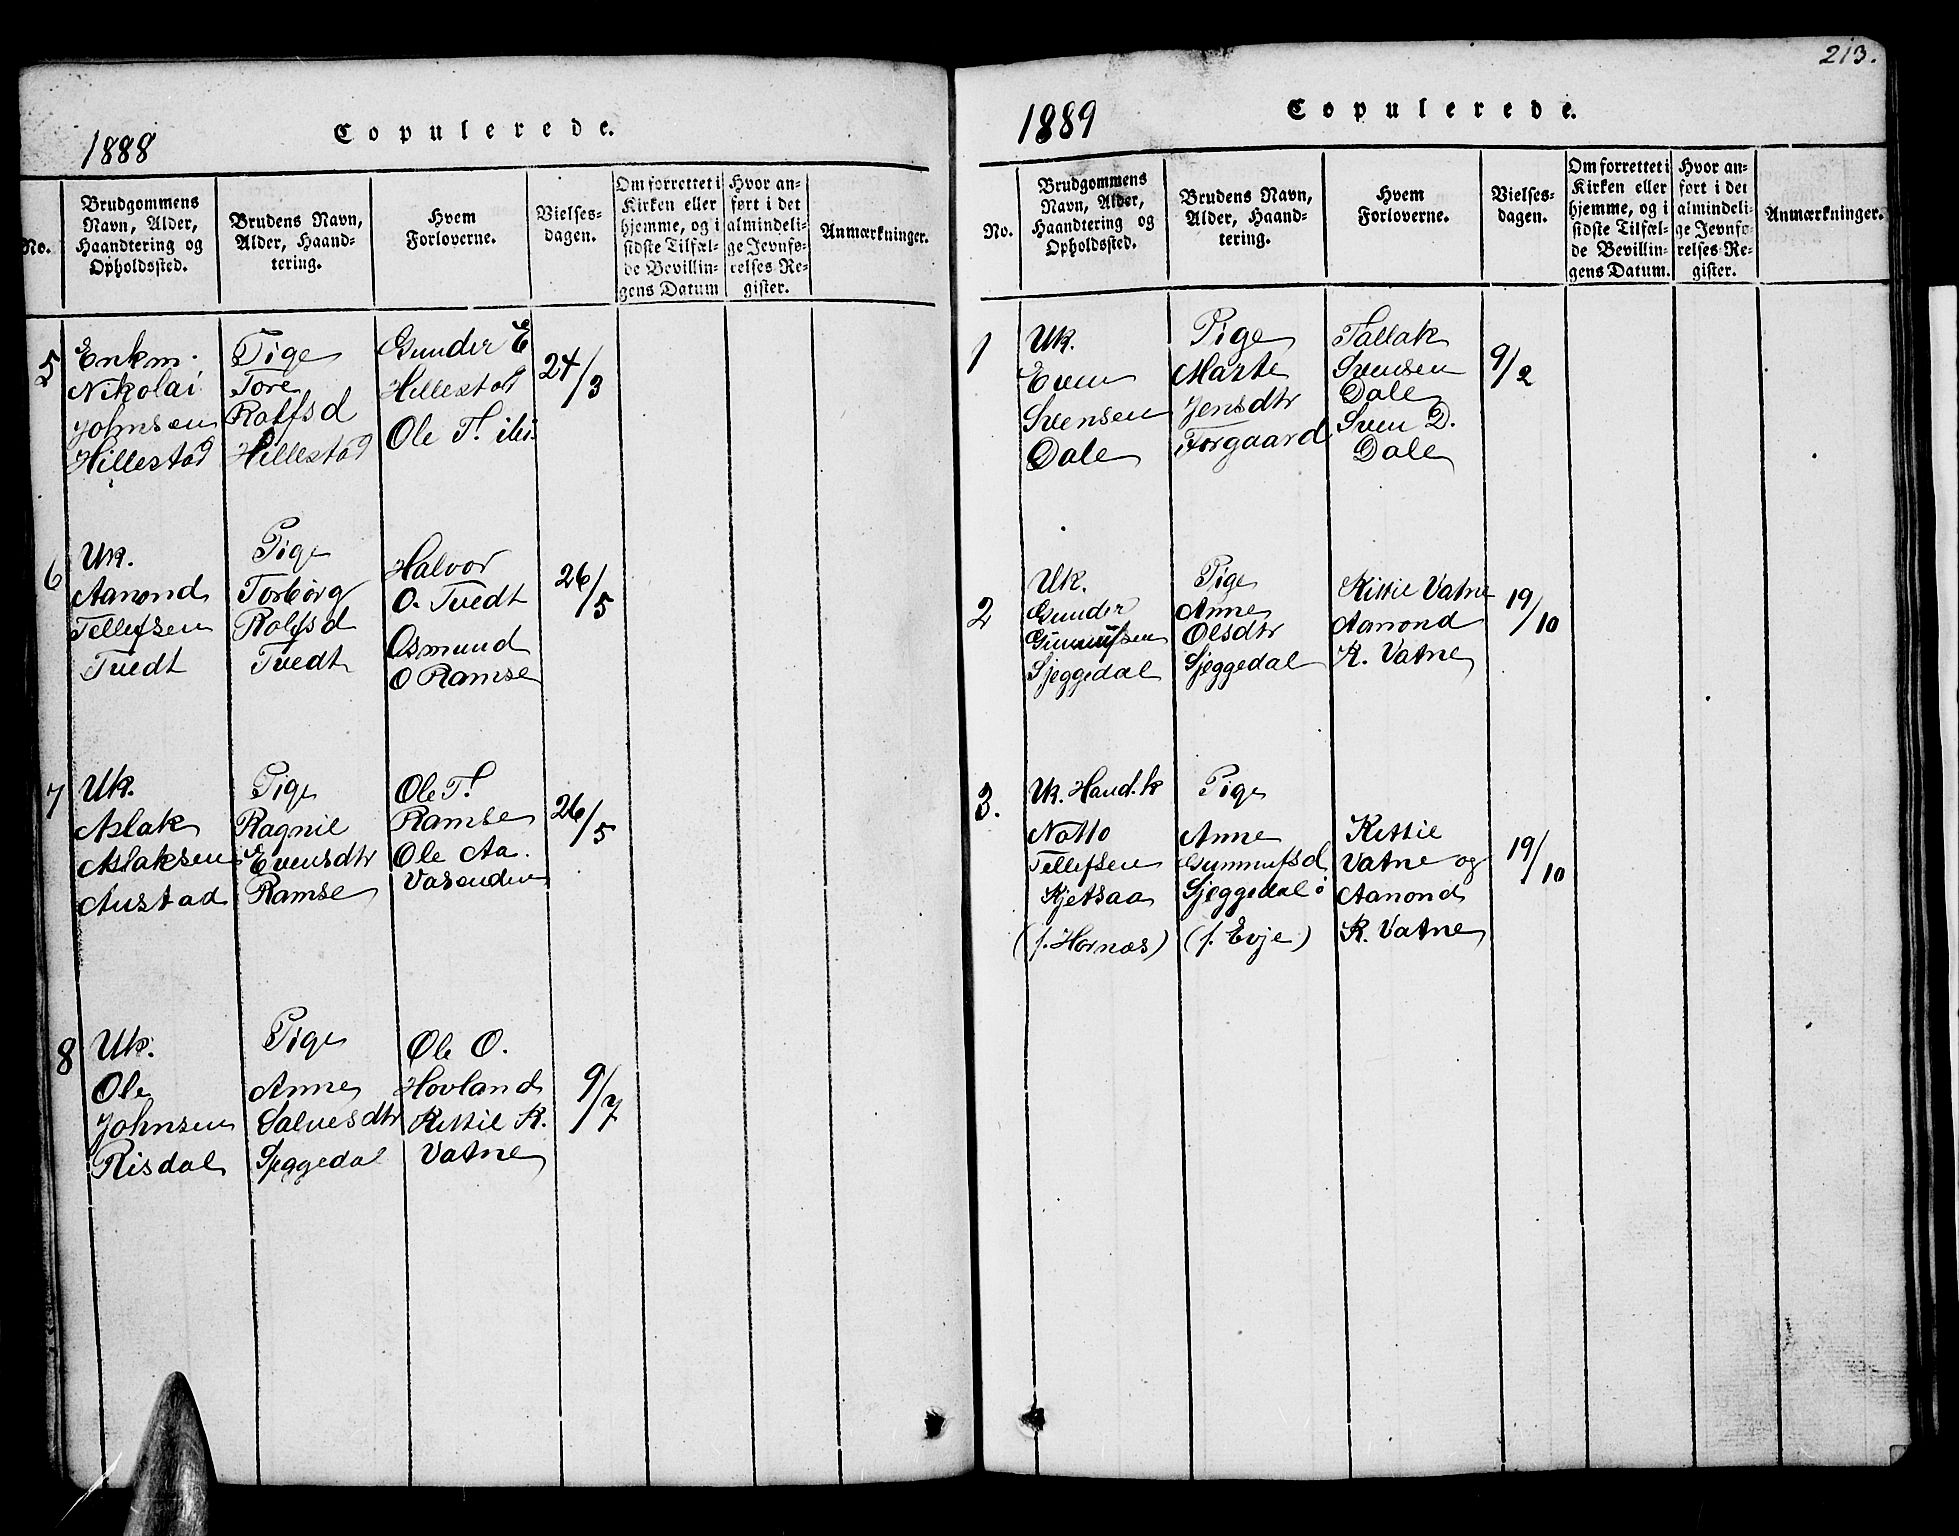 1888
Copulerede.
No.
Brudgommens
Navn, Alder,
Haandtering og
Opholdssted.
Brudens Navn,
Alder, Haand-
tering.
Hvem
Forloverne.
Vielses-
dagen.
Om forrettet i
Kirken eller
hjemme, og i
sidste Tilfæl-
de Bevillin-
gens Datum
Hvor an-
ført i det
almindeli-
ge Jevnfø-
relses Re-
gister.
Anmærkninger.
5
Enkm.
Nikolai
Johnsen
Hillestad
Pige
Tore
Rolfsd
Hillestad
Gunder E
Hillestad
Ole T. ibi.
24/3
6
Uk.
Aanond
Tellefsen
Tvedt
Pige
Torborg
Rolfsd
Tvedt
Halvor
O. Tvedt
Osmund
O Ramse
26/5
7
Uk.
Aslak
Aslaksen
Austad
Pige
Ragnil
Evensdtr
Ramse
Ole T.
Ramse
Ole Aa.
Vasenden
26/5
8
Uk.
Ole
Johnsen
Risdal
Pige
Anne
Salvesdtr
Sjeggedal
Ole O.
Hovland
Kittil K.
Vatne
9/7
213.
1889
Copulerede.
No.
Brudgommens
Navn, Alder,
Haandtering og
Opholdssted.
Brudens Navn,
Alder, Haand-
tering.
Hvem
Forloverne.
Vielses-
dagen.
Om forrettet i
Kirken eller
hjemme, og i
sidste Tilfæl-
de Bevillin-
gens Datum.
Hvor an-
ført i det
almindeli-
ge Jevnfø-
relses Re-
gister.
Anmærkninger.
1
Uk.
Even
Svensen
Dale
Pige
Marte
Jensdtr
Forgaard
Tallak
Svensen
Dale
Sven D.
Dale
9/2
2
Uk.
Gunder
Gunnufsen
Sjeggedal
Pige
Anne
Olsdtr
Sjeggedal
Kittil Vatne
Aanond
K. Vatne
19/10
3.
Uk. Hand.k
Notto
Tellefsen
Kjetsaa
(f. Hornæs)
Pige
Anne
Gunnufsd
Sjeggedal
(f. Evje)
Kittil
Vatne og
Aanond
K. Vatne
19/10